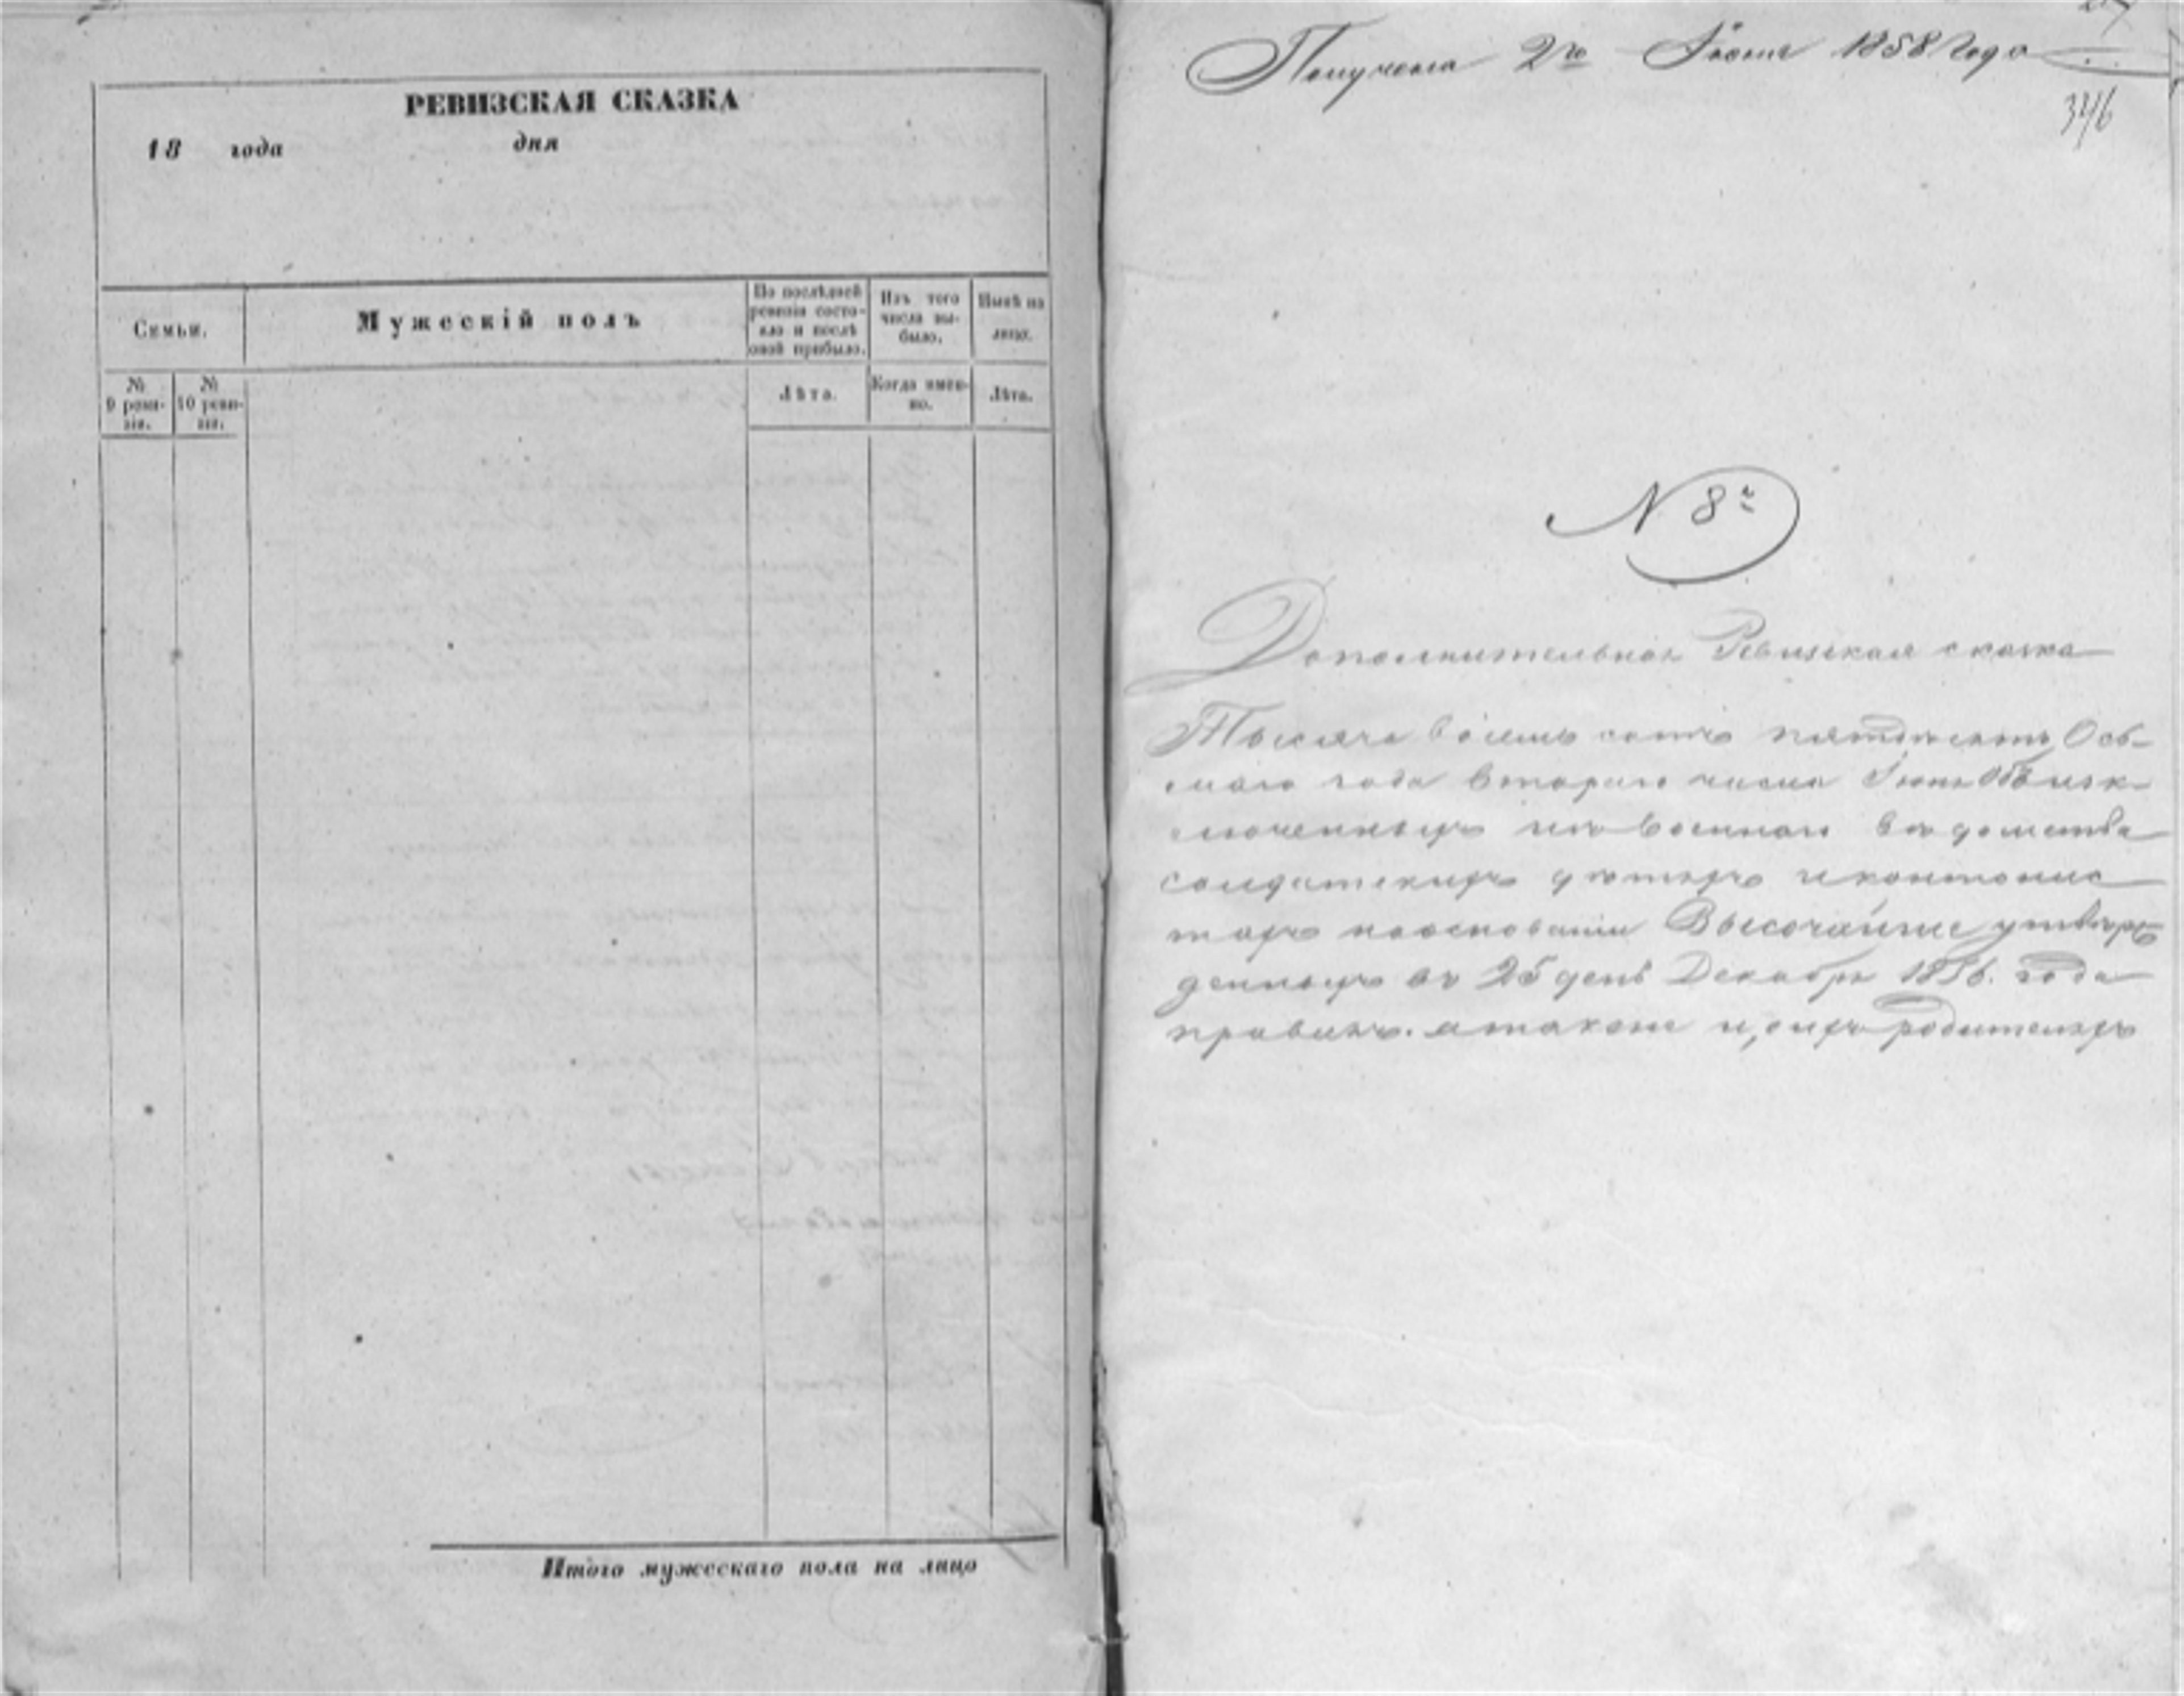 РЕВИЗСКАЯ СКАЗКА
18 года дня
Семьи.
Мужескій полъ
По послѣдней ревизіи состояло и послѣ оной прибыло.
Изъ того числа выбыло.
Нынѣ на лицо.
№ 9 ревизіи.
№ 10 ревизіи.
Лѣта.
Когда именно.
Лѣта.
Итого мужескаго пола на лицо
Получена 2го Іюня 1858 Года
346
N 8й
Дополнительная Ревизская сказка
Тысяча восемь сотъ пятдесятъ Ось-
маго года втораго числа Іюня Обизк-
люченныхъ изъ военнаго вѣдомства
солдатскихъ дѣтяхъ и кантонис
тахъ наоснованіи Высочайше утверж
денныхъ въ 25 день Декабря 1856. года
правилъ. атакже и, ихъ родителяхъ